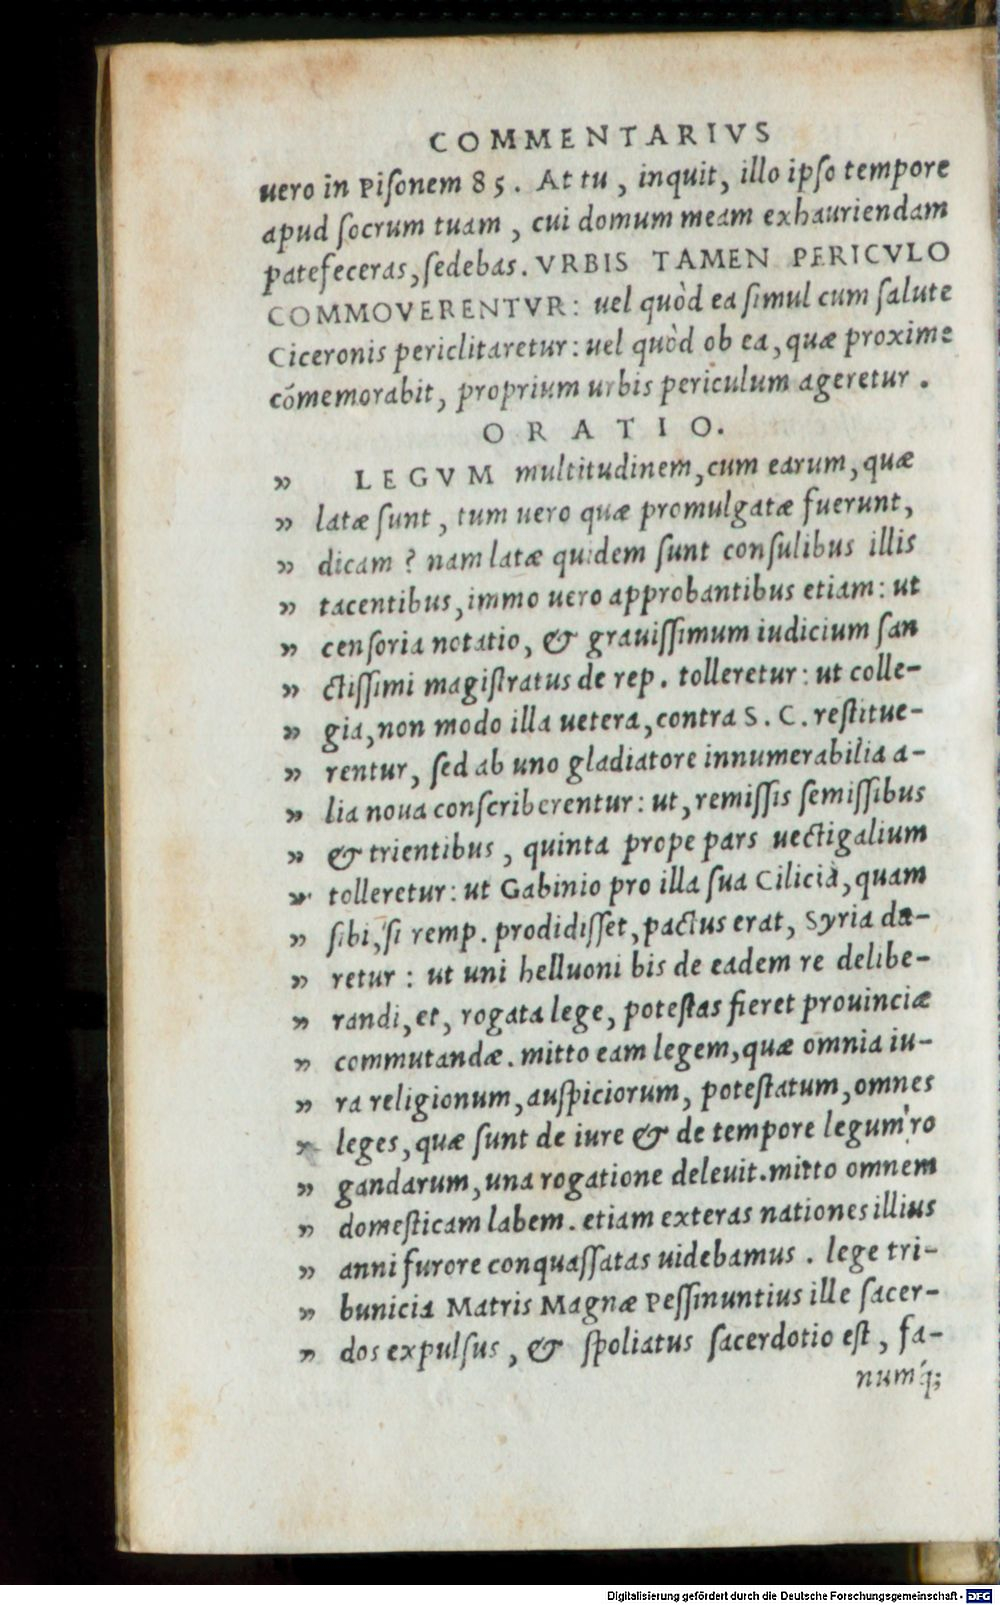 COMMENTARIVS
uero in Piſonem 85. At tu, inquit, illo ipſo tempore
apud ſocrum tuam, cui domum meam exhauriendam
patefeceras, ſedebas. VRBIS TAMEN PERICVLO
COMMOVERENTVR: uel quòd ea ſimul cum ſalute
Ciceronis periclitaretur: uel quòd ob ea, quæ proxime
cómemorabit, proprium urbis periculum ageretur.
ORATIO.
” LEGVM multitudinem, cum earum, quæ
” latæ ſunt, tum uero quæ promulgatæ fuerunt,
” dicam? nam latæ quidem ſunt conſulibus illis
” tacentibus, immo uero approbantibus etiam: ut
” cenſoria notatio, & grauiſſimum iudicium ſan
” ctiſſimi magiſtratus de rep. tolleretur: ut colle-
” gia, non modo illa uetera, contra S. C. reſtitue-
” rentur, ſed ab uno gladiatore innumerabilia a-
” lia noua conſcriberentur: ut, remiſſis ſemiſſibus
” & trientibus, quinta prope pars uectigalium
” tolleretur: ut Gabinio pro illa ſua Cilicia, quam
” ſibi, ſi remp. prodidiſſet, pactus erat, Syria da-
” retur: ut uni helluoni bis de eadem re delibe-
” randi, et, rogata lege, poteſtas fieret prouinciæ
” commutandæ. mitto eam legem, quæ omnia iu-
” ra religionum, auſpiciorum, poteſtatum, omnes
” leges, quæ ſunt de iure & de tempore legum ro
” gandarum, una rogatione deleuit. mitto omnem
” domeſticam labem. etiam exteras nationes illius
” anni furore conquaſſatas uidebamus. lege tri-
” bunicia Matris Magnæ Peſſinuntius ille ſacer-
” dos expulſus, & ſpoliatus ſacerdotio eſt, fa-
numq́;
Digitalisierung gefördert durch die Deutsche Forschungsgemeinschaft - DFG